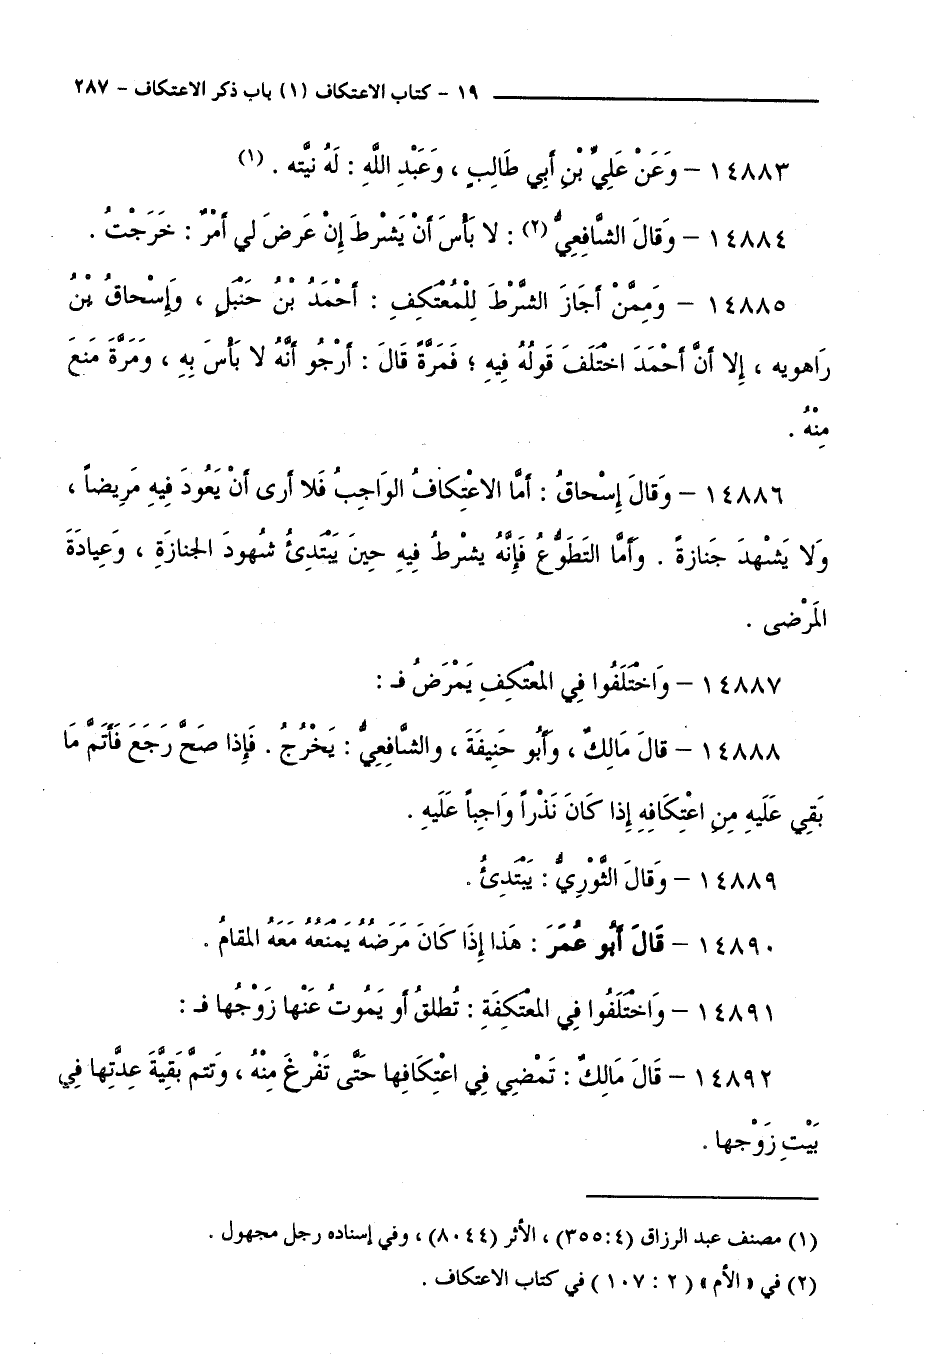 ١٩ - كتاب الاعتكاف (١) باب ذكر الاعتكاف - ٢٨٧
١٤٨٨٣ - وَعَنْ عَلِيٍّ بْنِ أَبِي طَالِبٍ ، وَعَبْدِ اللَّهِ : لَهُ نيَّته . (١)
١٤٨٨٤ - وَقالَ الشَّافِعِيُّ (٢) : لا بَأْسَ أَنْ يَشْرطَ إِنْ عَرضَ لي أَمْرٌ : خَرَجْتُ .
١٤٨٨٥ - وَمِمَّنْ أَجَازَ الشَّرْطَ لِلْمُعْتَكِفِ : أَحْمَدُ بْنُ حَنْبَلٍ ، وَإِسْحاقُ بْنُ
رَاهويه ، إِلا أَنَّ أَحْمَدَ اخْتلَفَ قَوْلُهُ فيهِ ؛ فَمَرَّةً قالَ : أَرْجُو أَنَّهُ لا بَأْسَ بِهِ ، وَمَرَّةً مَنعَ
مِنْهُ .
١٤٨٨٦ - وَقالَ إِسْحاقُ : أَمَّا الاعْتِكافُ الوَاجِبُ فَلا أرى أَنْ يَعُودَ فيهِ مَرِيضاً ،
وَلا يَشْهدَ جَنازةً . وَأَمَّا التَطَوُّعُ فَإِنَّهُ يشرطُ فيهِ حينَ يَبْتَدِئُ شهُودَ الجنازةِ ، وَعيادَةَ
المَرْضى .
١٤٨٨٧ - وَاخْتَلَفُوا فِي المعْتكِفِ يَمْرَضُ فـ :
١٤٨٨٨ - قالَ مَالِكٌ ، وَأَبُو حَنِيفَةَ ، والشَّافِعِيُّ : يَخْرُجُ . فَإِذا صَحَّ رَجَعَ فَأَتَمَّ مَا
بَقِي عَلَيهِ مِنِ اعْتِكَافِهِ إِذا كَانَ نَذْراً وَاجباً عَلَيهِ .
١٤٨٨٩ - وَقالَ الثَّوْرِيُّ : يَبْتَدِئُ .
١٤٨٩٠ - قَالَ أَبُو عُمَرَ : هَذا إِذَا كَانَ مَرَضهُ يَمْنَعُهُ مَعَهُ المقامُ .
١٤٨٩١ - وَاخْتَلَفُوا فِي المعْتَكِفَةِ : تُطلقُ أَو يَمُوتُ عَنْها زَوْجُها فـ :
١٤٨٩٢ - قَالَ مَالِكٌ : تَمْضي فِي اعتِكَافِها حَتَّى تَفْرغَ مِنْهُ ، وَتتمُّ بَقِيَّةَ عِدَّتِها فِي
بَيْتِ زَوْجها .
(١) مصنف عبد الرزاق (٤:٣٥٥) ، الأثر (٨٠٤٤) ، وفي إسناده رجل مجهول .
(٢) في « الأم » (٢ : ١٠٧) في كتاب الاعتكاف .